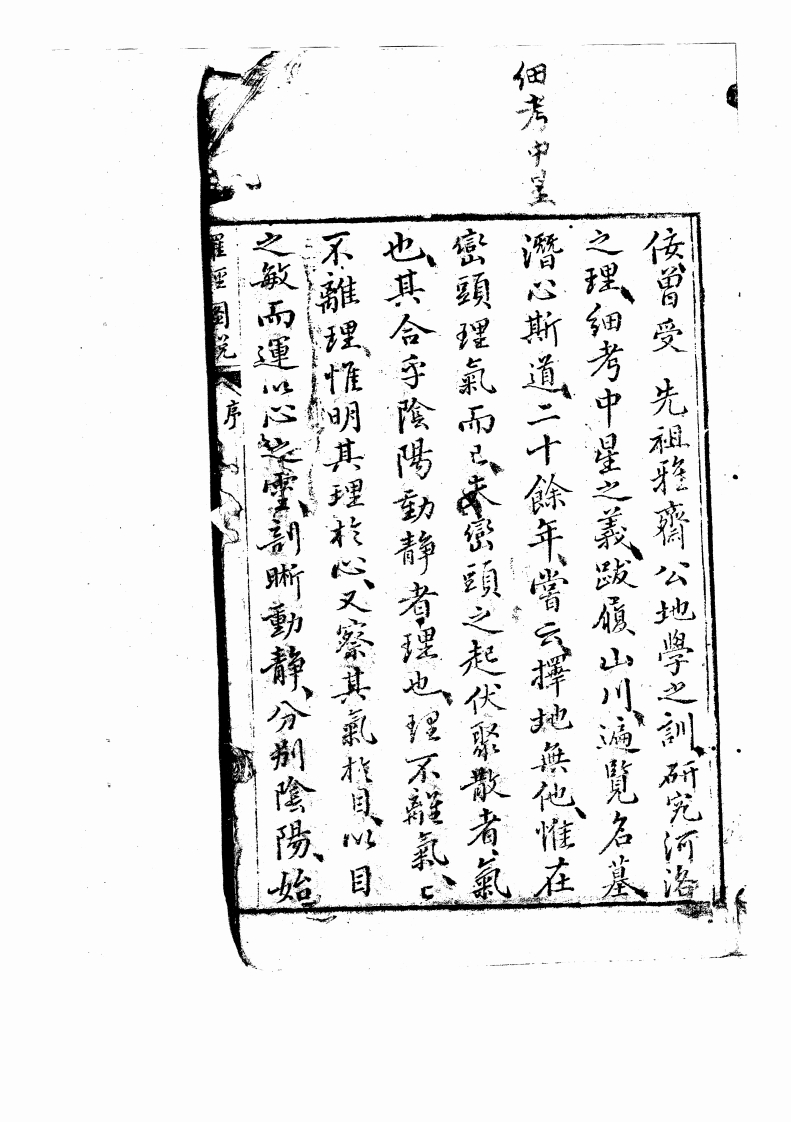 細考中星
佞曾受 先祖雅齋公地學之訓、研究河洛
之理、細考中星之義、跋履山川、遍覽名墓、
潛心斯道、二十餘年、嘗云、擇地無他、惟在
巒頭理氣而已、夫巒頭之起伏聚散者、氣
也、其合乎陰陽動靜者、理也、理不離氣、匕
不離理、惟明其理於心、又察其氣於目、以目
之敏而運以心之靈、剖晰動靜、分別陰陽、始
羅經圖說 序